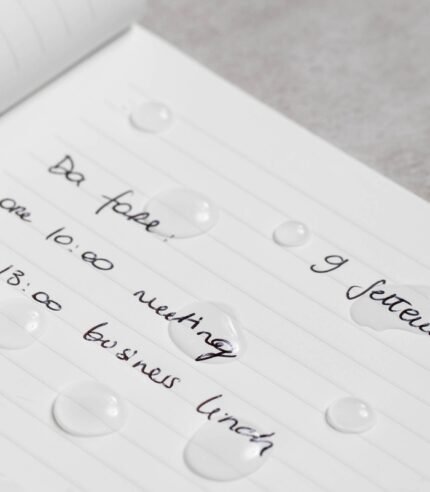 9 settem
Da fare:
ore 10:00 meeting
13:00 business lunch